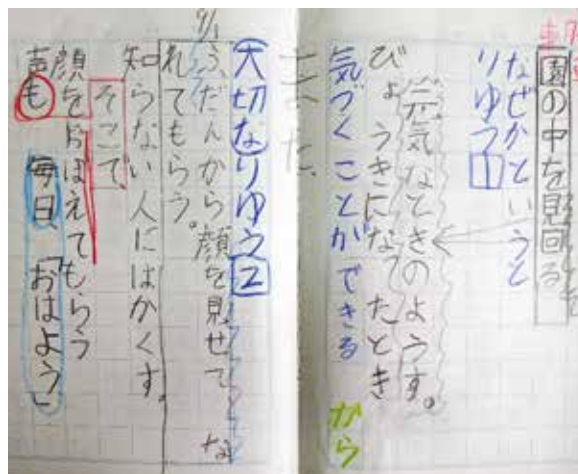 園の中を見回る
なぜかというと
りゆう1
元気なときのようす。
びょうきになったとき
気づくことができる
から
大切なりゆう2
9/1
ふだんから顔を見せて な
れてもらう。
知らない人にはかくす。
そこで、
顔をおぼえてもらう
声も 毎日、「おはよう」